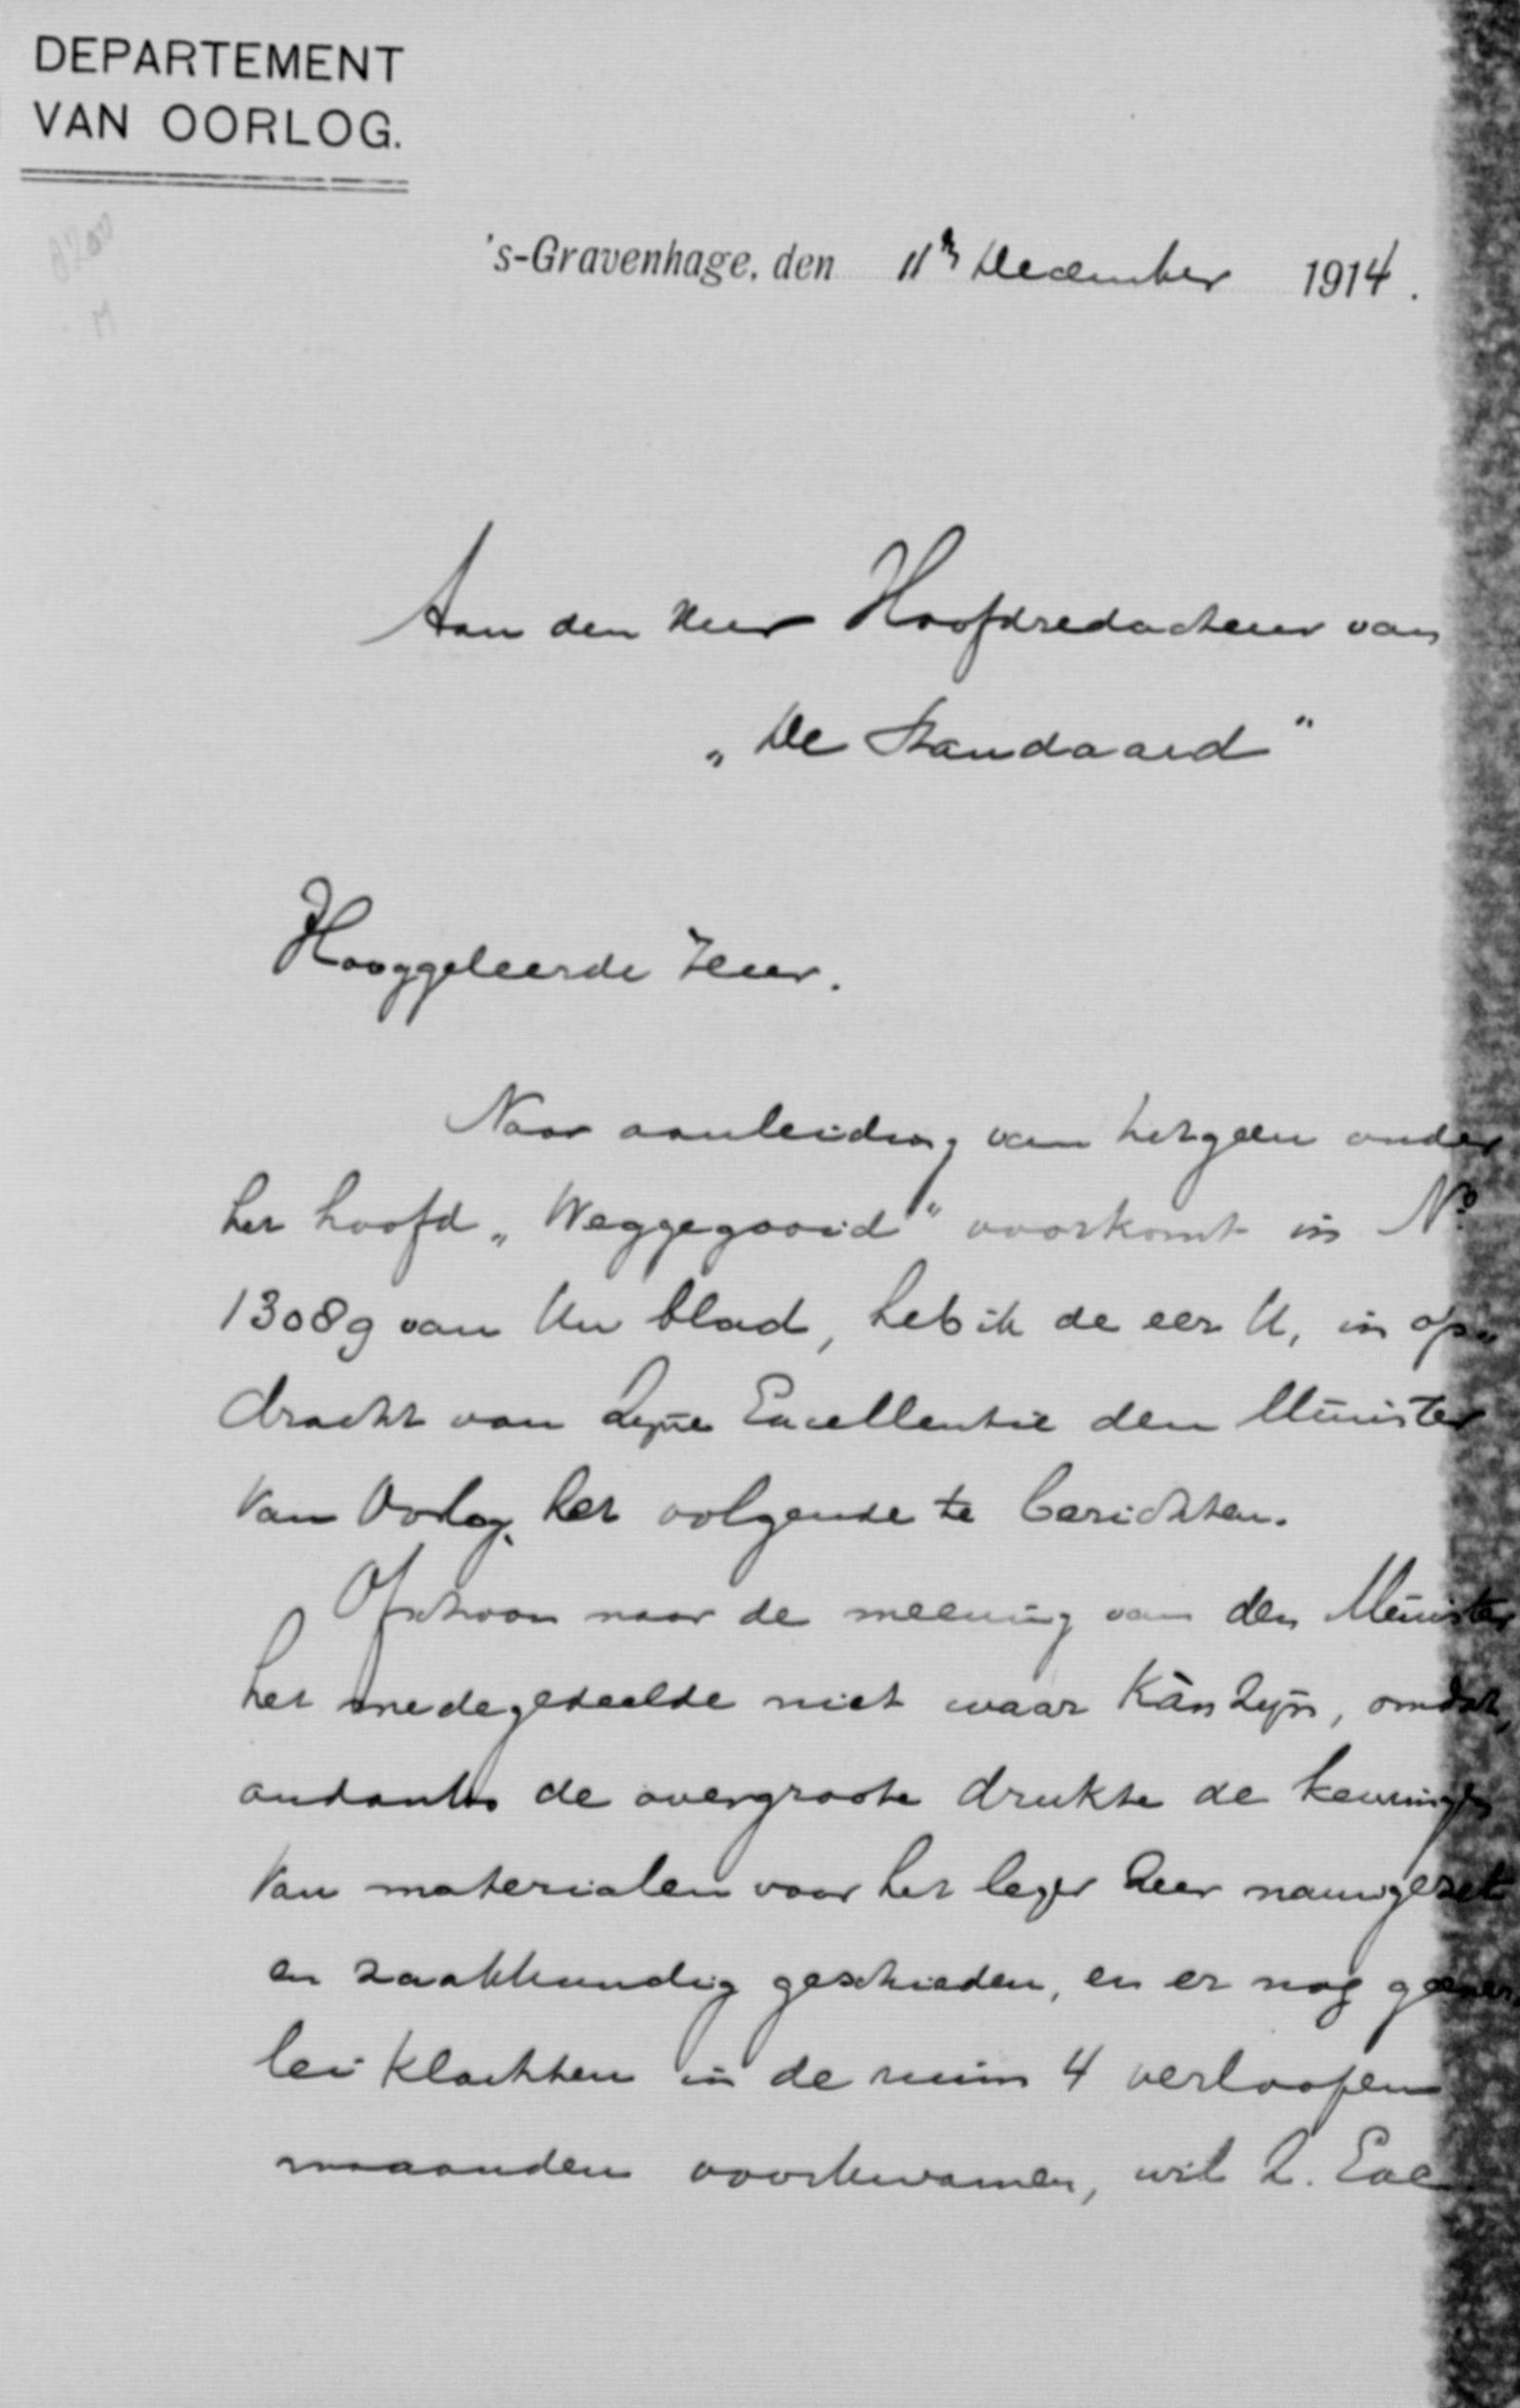 DEPARTEMENT
VAN OORLOG.
8200
M
's-Gravenhage, den 11n December 1914.
Aan den Heer Hoofdredacteur van
„De Standaard"
Hooggeleerde Heer.
Naar aanleiding van hetgeen onder
het hoofd „Weggegooid" voorkomt in No
13089 van Uw blad, heb ik de eer U, in op-
dracht van Zijne Excellentie den Minister
van Oorlog, het volgende te berichten.
Ofschoon naar de meening van den Minister
het medegedeelde niet waar kàn zijn, omdat,
ondanks de overgroote drukte de keuringen
van materialen voor het leger zeer nauwgezet
en zaakkundig geschieden, en er nog geener-
lei klachten in de ruim 4 verloopen
maanden voorkwamen, wil Z. Exc